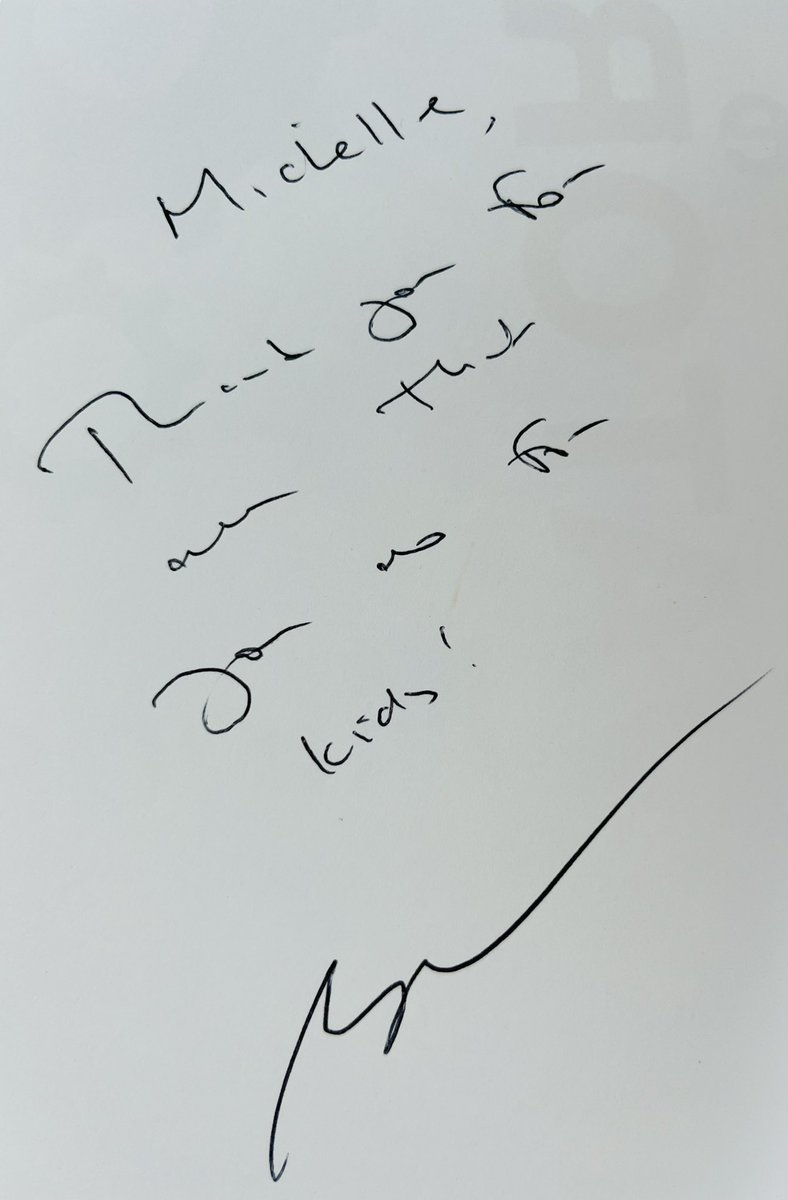 Michelle,
Thank you for
all that
you do for
kids!